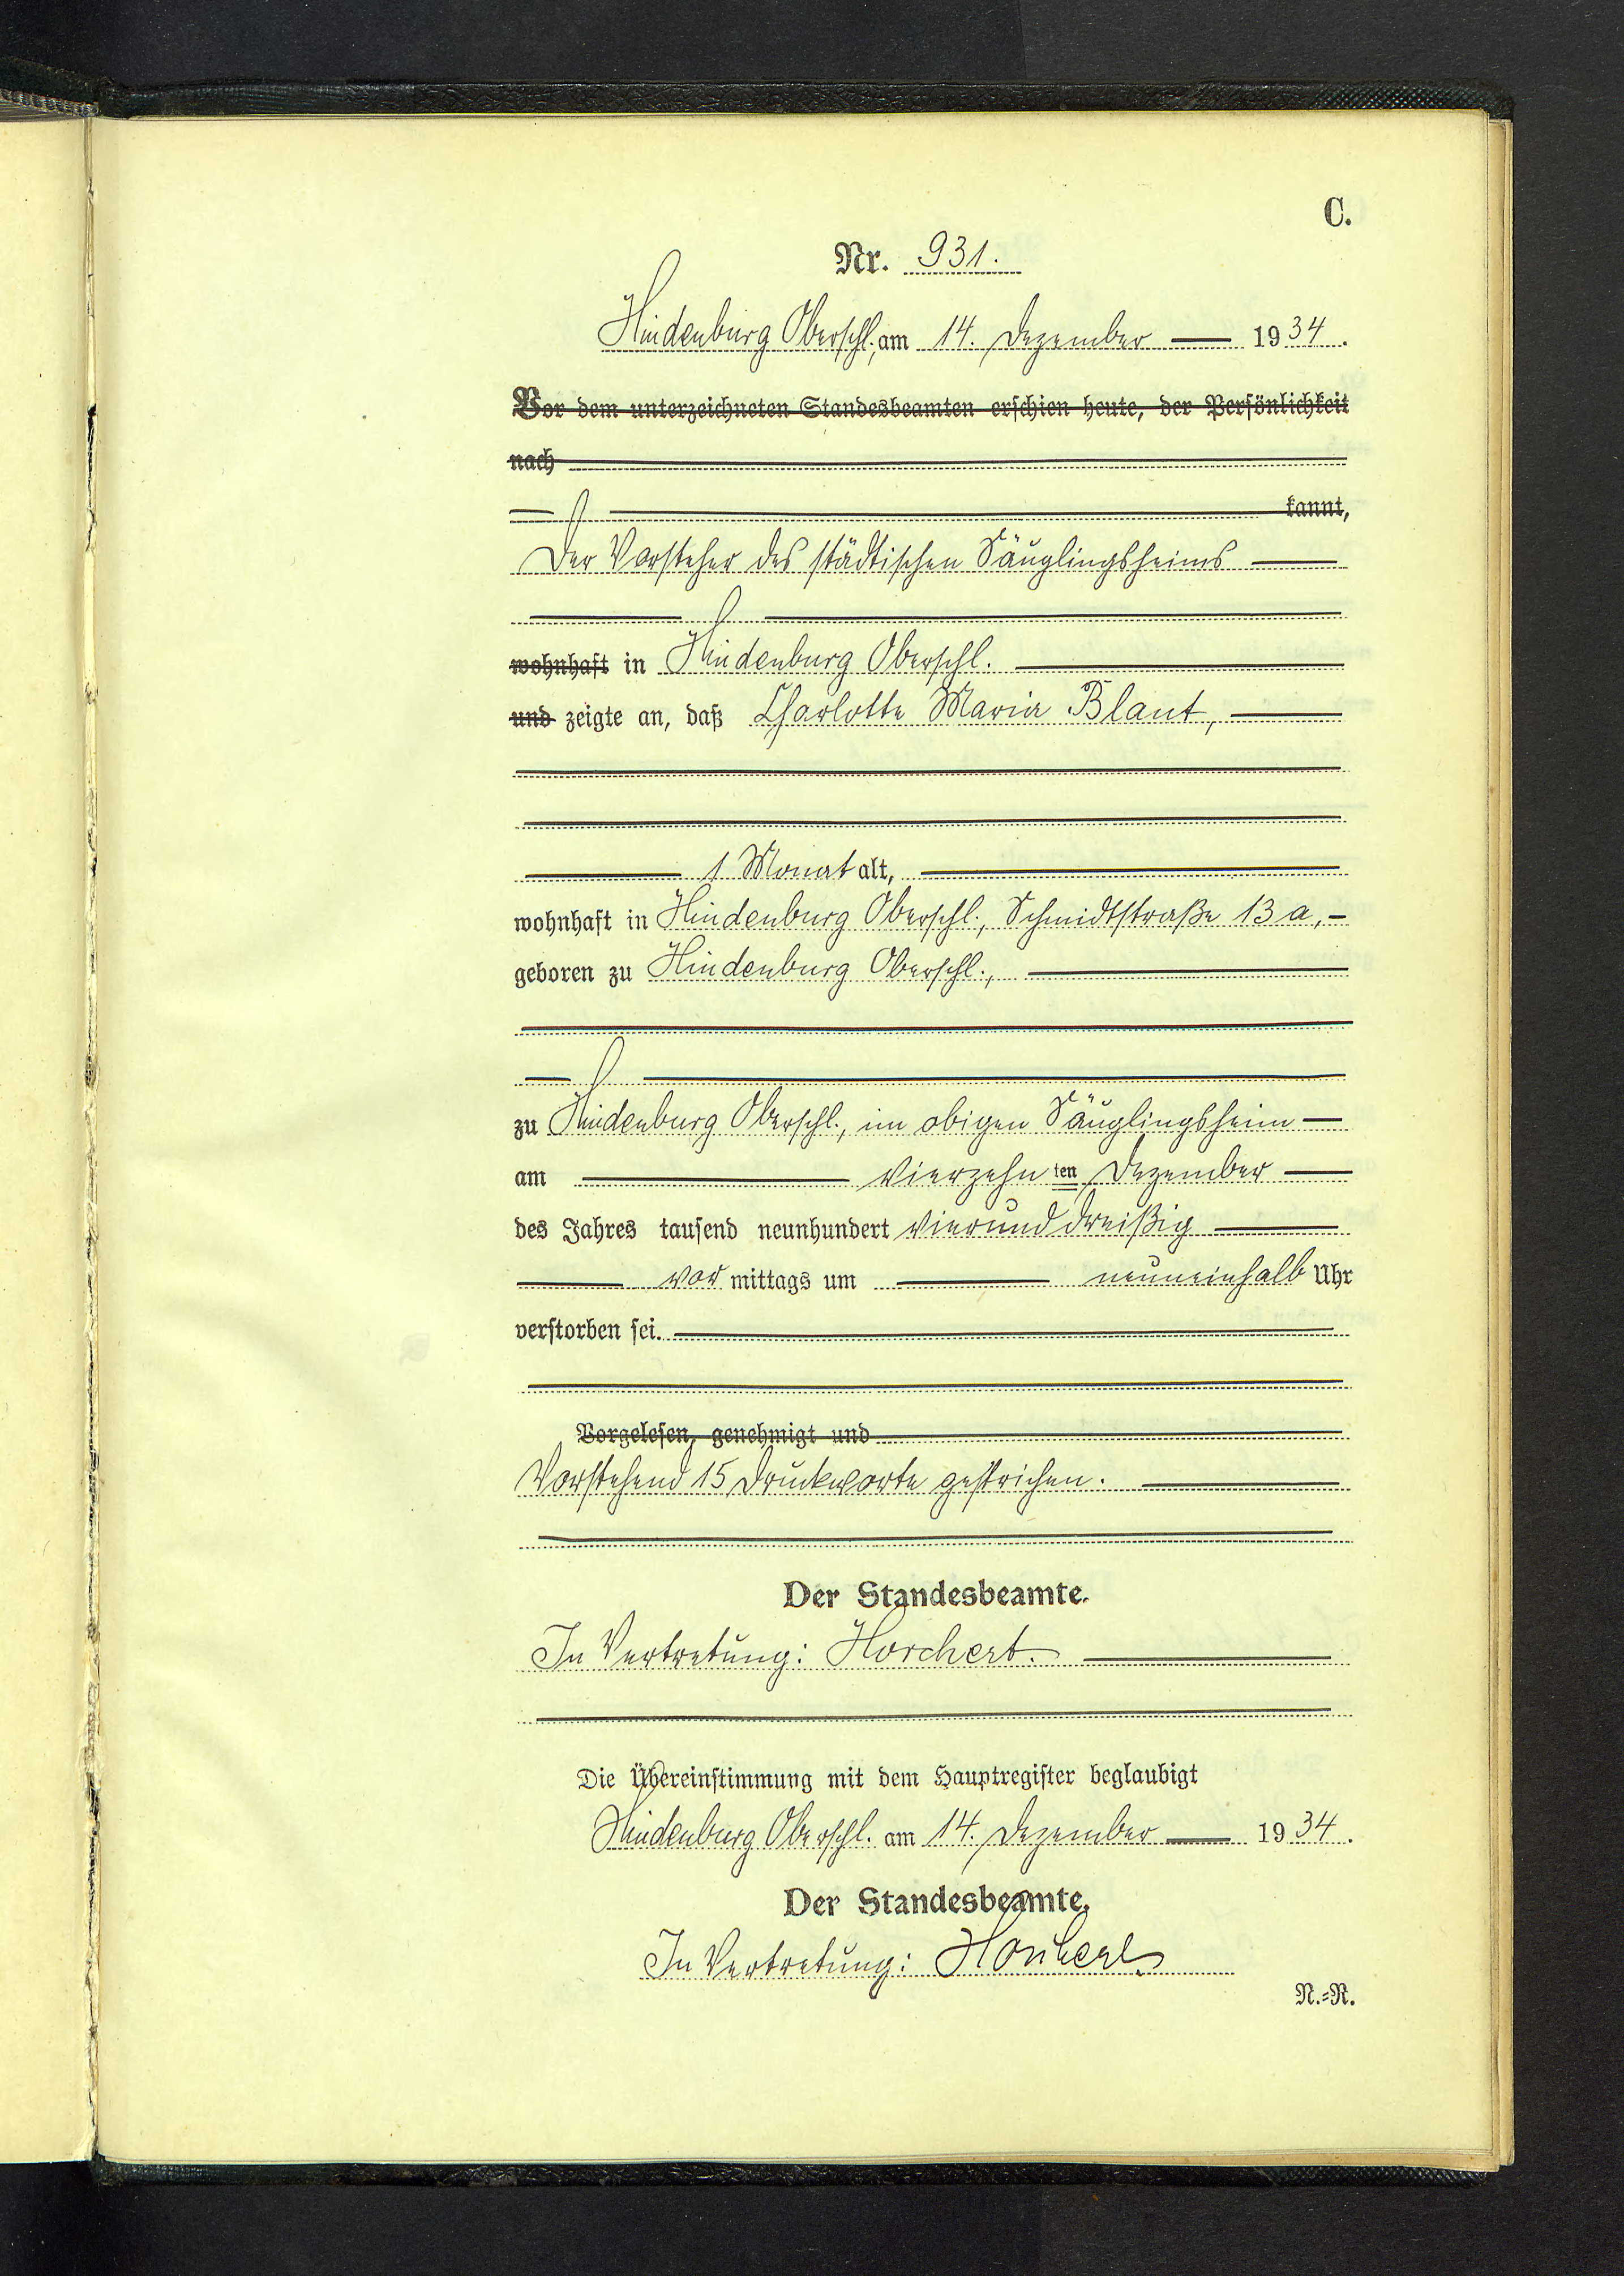 C.
Nr. 931.
Hindenburg Oberschl., am 14. Dezember 1934.
Vor dem unterzeichneten Standesbeamten erschien heute, der Persönlichkeit
nach
kannt,
Der Vorsteher des städtischen Säuglingsheims
wohnhaft in Hindenburg Oberschl.
und zeigte an, daß Charlotte Maria Blaut,
1 Monat alt,
wohnhaft in Hindenburg Oberschl., Schmidtstraße 13 a,
geboren zu Hindenburg Oberschl.,
zu Hindenburg Oberschl., im obigen Säuglingsheim
am vierzehnten Dezember
des Jahres tausend neunhundert vierunddreißig
vormittags um neuneinhalb Uhr
verstorben sei.
Vorgelesen, genehmigt und
Vorstehend 15 Druckworte gestrichen.
Der Standesbeamte.
In Vertretung: Horchert.
Die Übereinstimmung mit dem Hauptregister beglaubigt
Hindenburg Oberschl. am 14. Dezember 1934.
Der Standesbeamte.
In Vertretung: Horchert
N.=R.